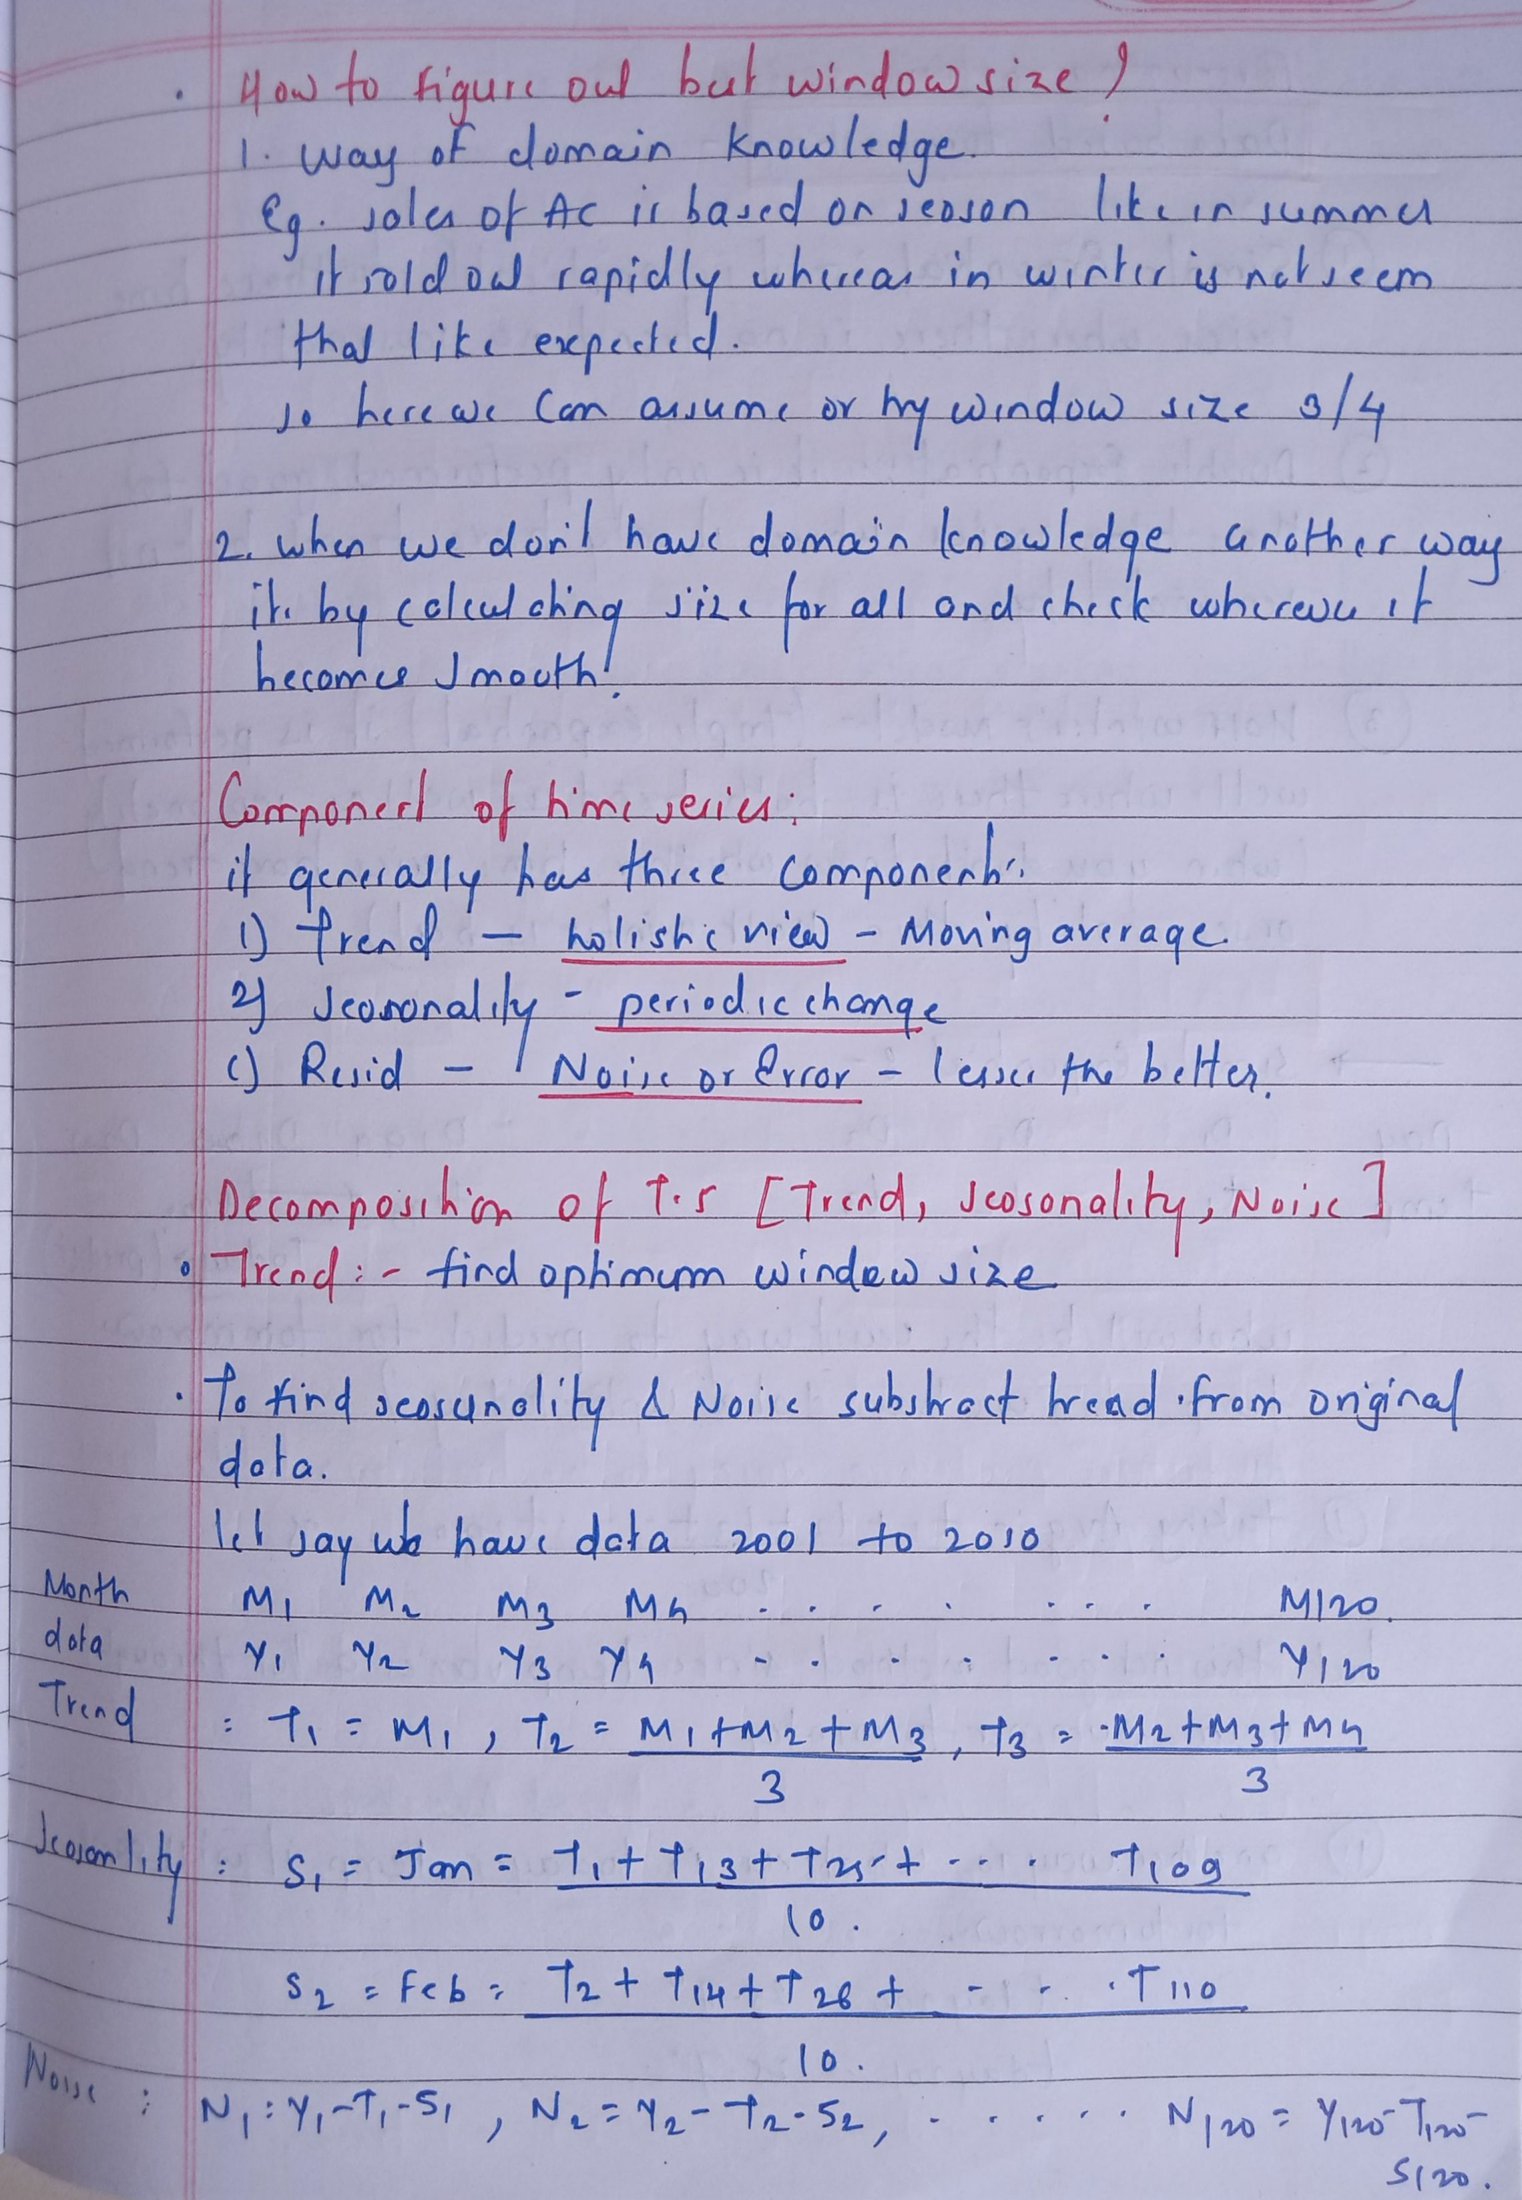 How to figure out best window size ?
1. way of domain knowledge.
Eg. sales of AC is based on season like in summer
it sold out rapidly whereas in winter is not seem
that like expected.
so here we can assume or try window size 3/4
2. when we don't have domain knowledge another way
is by calculating size for all and check whereve it
becomes smooth!
Component of time series:
it generally has three components.
1) Trend - holistic view - Moving average.
2) Seasonality - periodic change
c) Resid - Noise or Error - lesser the better.
Decomposition of T.S [Trend, seasonality, Noise]
• Trend :- find optimum window size
• To find seasonality & Noise substract trend from original
data.
let say we have data 2001 to 2010
Month M1 M2 M3 M4 . . . . . . . M120.
data Y1 Y2 Y3 Y4 - . . . . . . Y120
Trend : T1 = M1 , T2 = M1+M2+M3 , T3 = M2+M3+M4
3 3
Seasonlity : S1 = Jan = T1 + T13 + T25 + - - . T109
10.
S2 = Feb = T2 + T14 + T26 + - - . . T110
10.
Noise : N1 : Y1-T1-S1 , N2 = Y2-T2-S2, . . . . . . N120 = Y120-T120-
S120.